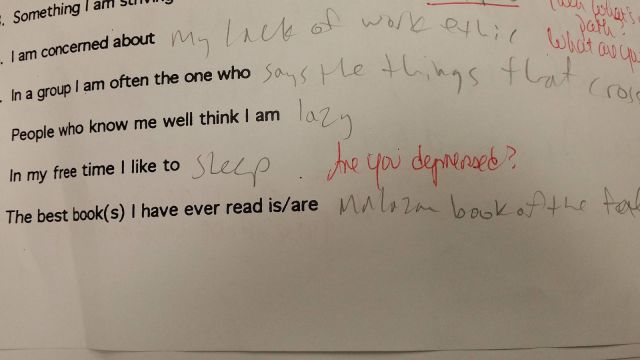 . Something I am striving
I am concerned about my lack of work ethic
In a group I am often the one who says the things that cross
People who know me well think I am lazy
In my free time I like to sleep. Are you depressed?
The best book(s) I have ever read is/are Malazan book of the
path?
What are you